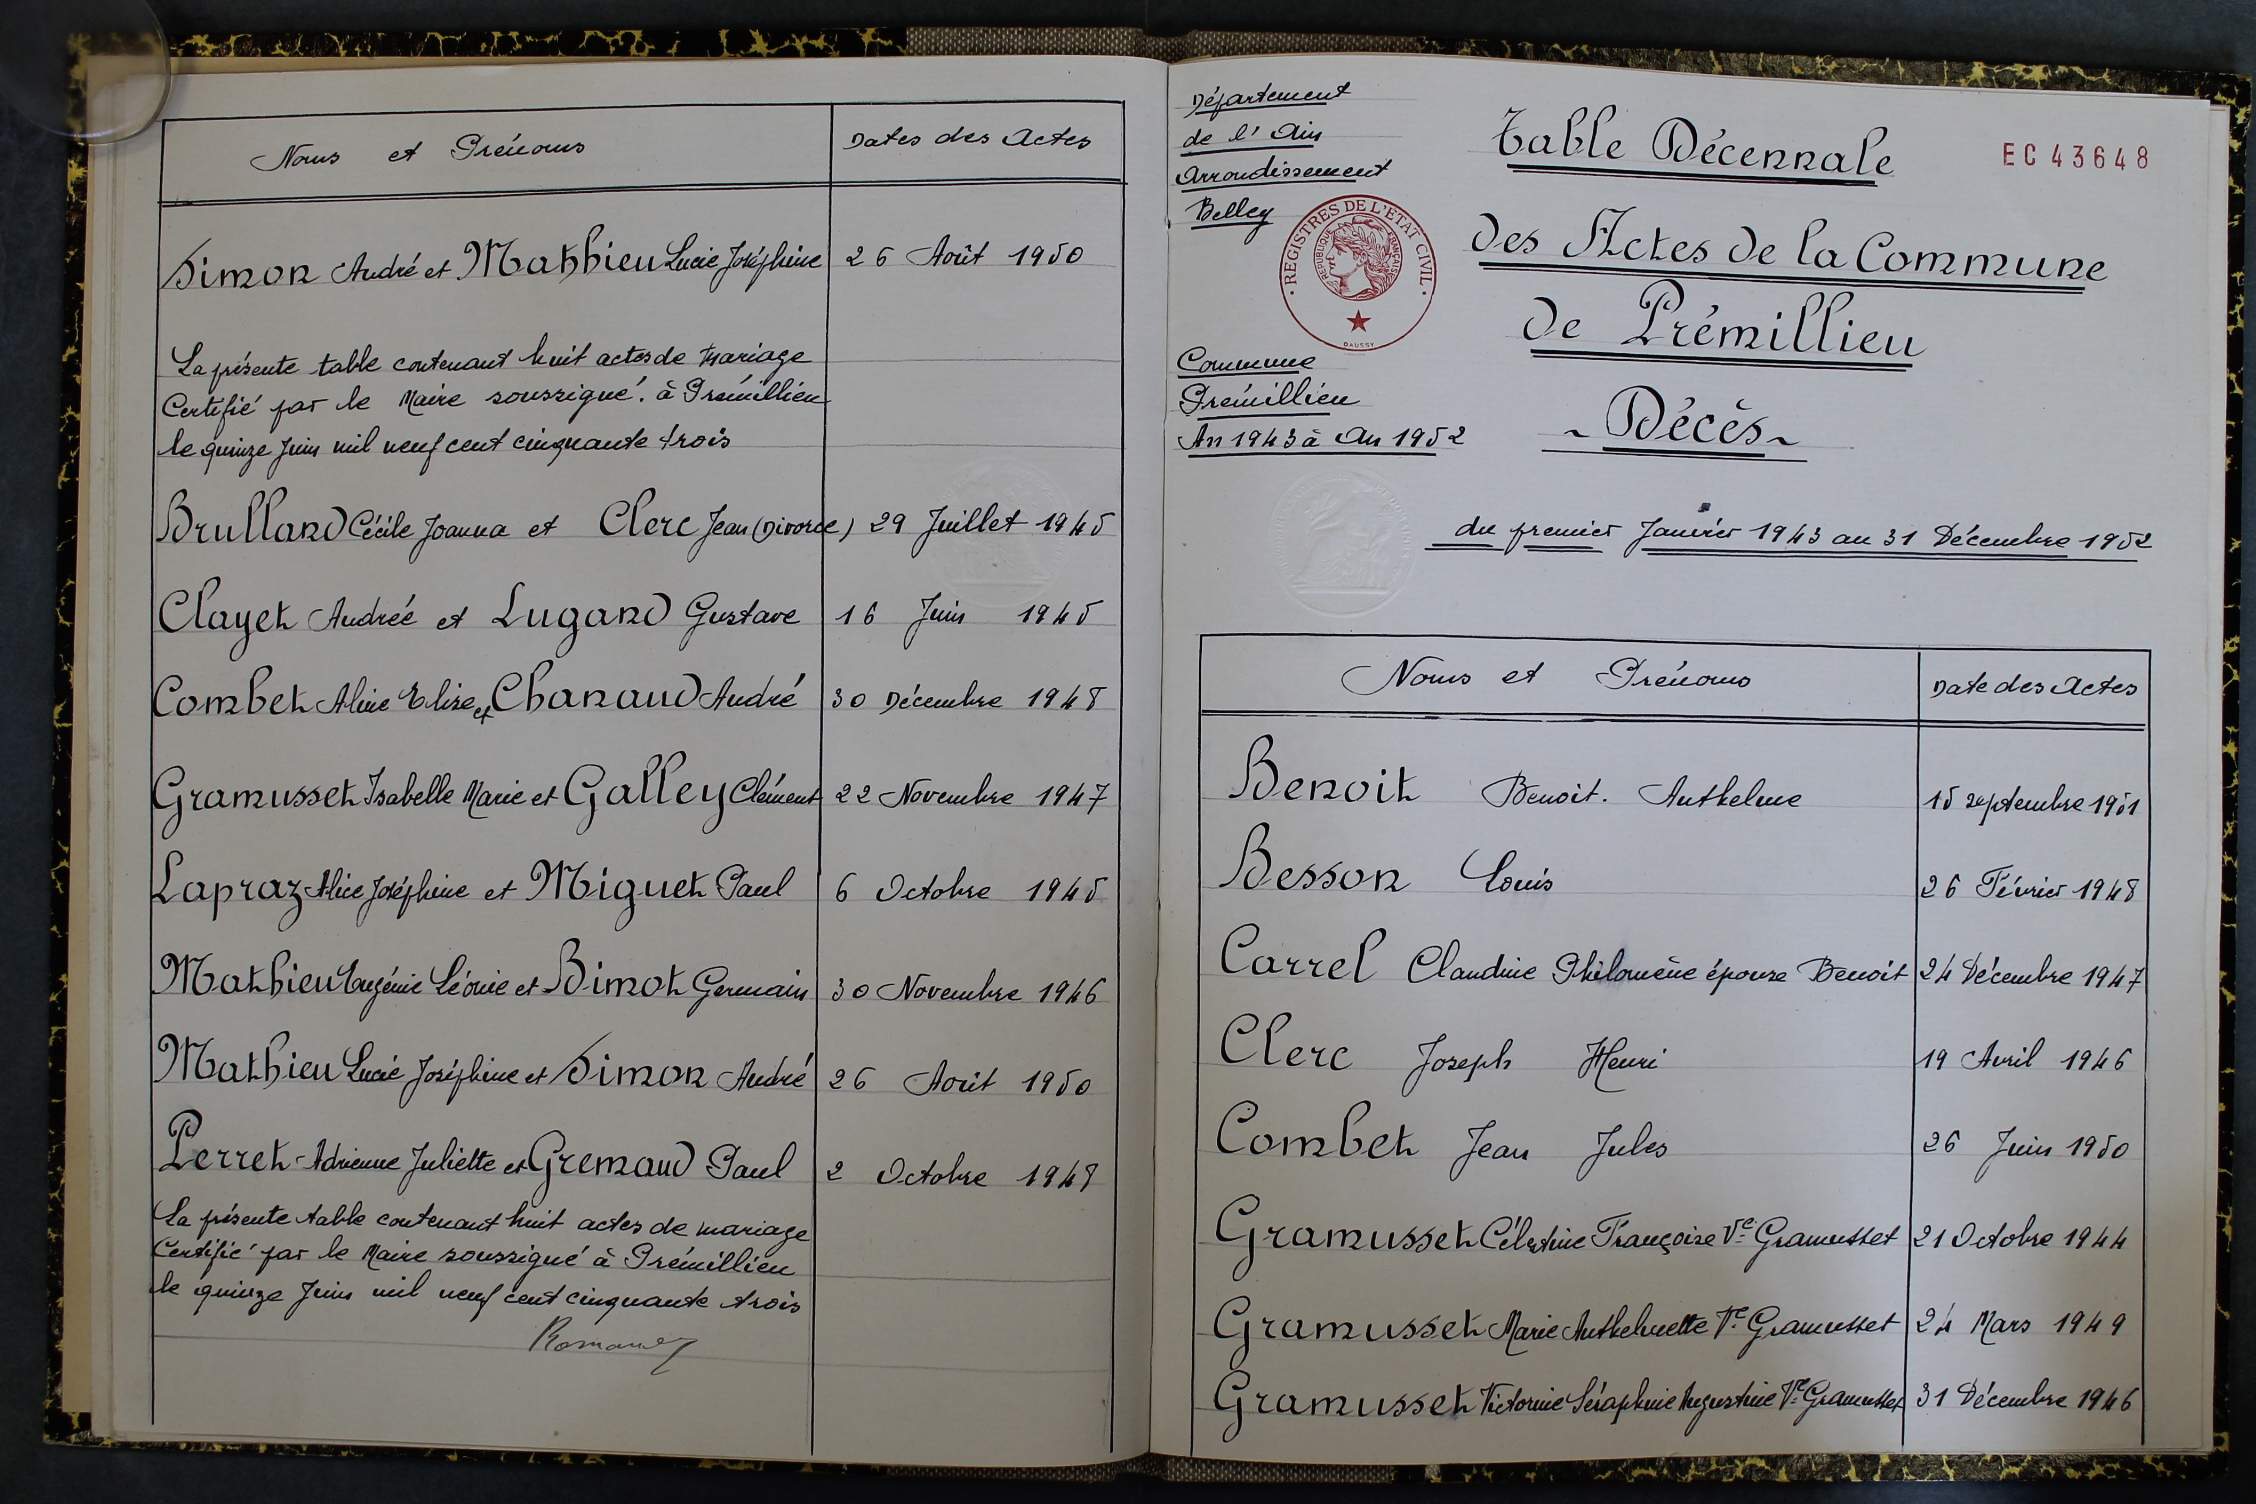 Noms et Prénoms Dates des Actes
Simon André et Mathieu Lucie Joséphine 26 Août 1950
La présente table contenant huit actes de mariage
Certifié par le Maire soussigné. à Prémillieu
le quinze Juin mil neuf cent cinquante trois
Brulland Cécile Joanna et Clerc Jean (Divorce) 29 Juillet 1945
Clayet Andrée et Lugand Gustave 16 Juin 1945
Combet Aline Elise et Chanaud André 30 Décembre 1948
Gramusset Isabelle Marie et Galley Clément 22 Novembre 1947
Lapraz Alice Joséphine et Miguet Paul 6 Octobre 1945
Mathieu Eugénie Léonie et Bimot Germain 30 Novembre 1946
Mathieu Lucie Joséphine et Simon André 26 Août 1950
Perret Adrienne Juliette et Gremaud Paul 2 Octobre 1948
La présente table contenant huit actes de mariage
Certifié par le Maire soussigné à Prémillieu
le quinze Juin mil neuf cent cinquante trois
Département
de l'Ain
Arrondissement
Belley
REGISTRES DE L'ETAT CIVIL
REPUBLIQUE FRANCAISE
DAUSSY
Commune
Prémillieu
An 1943 à An 1952
Table Décennale
EC 43648
des Actes de la Commune
de Prémillieu
~ Décès ~
du premier Janvier 1943 au 31 Décembre 1952
Noms et Prénoms Date des Actes
Benoit Benoit. Anthelme 15 septembre 1951
Besson Louis 26 Février 1948
Carrel Claudine Philomène épouse Benoit 24 Décembre 1947
Clerc Joseph Henri 19 Avril 1946
Combet Jean Jules 26 Juin 1950
Gramusset Célestine Françoise Ve Gramusset 21 Octobre 1944
Gramusset Marie Anthelmette Ve Gramusset 24 Mars 1949
Gramusset Victorine Séraphine Augustine Ve Gramusset 31 Décembre 1946